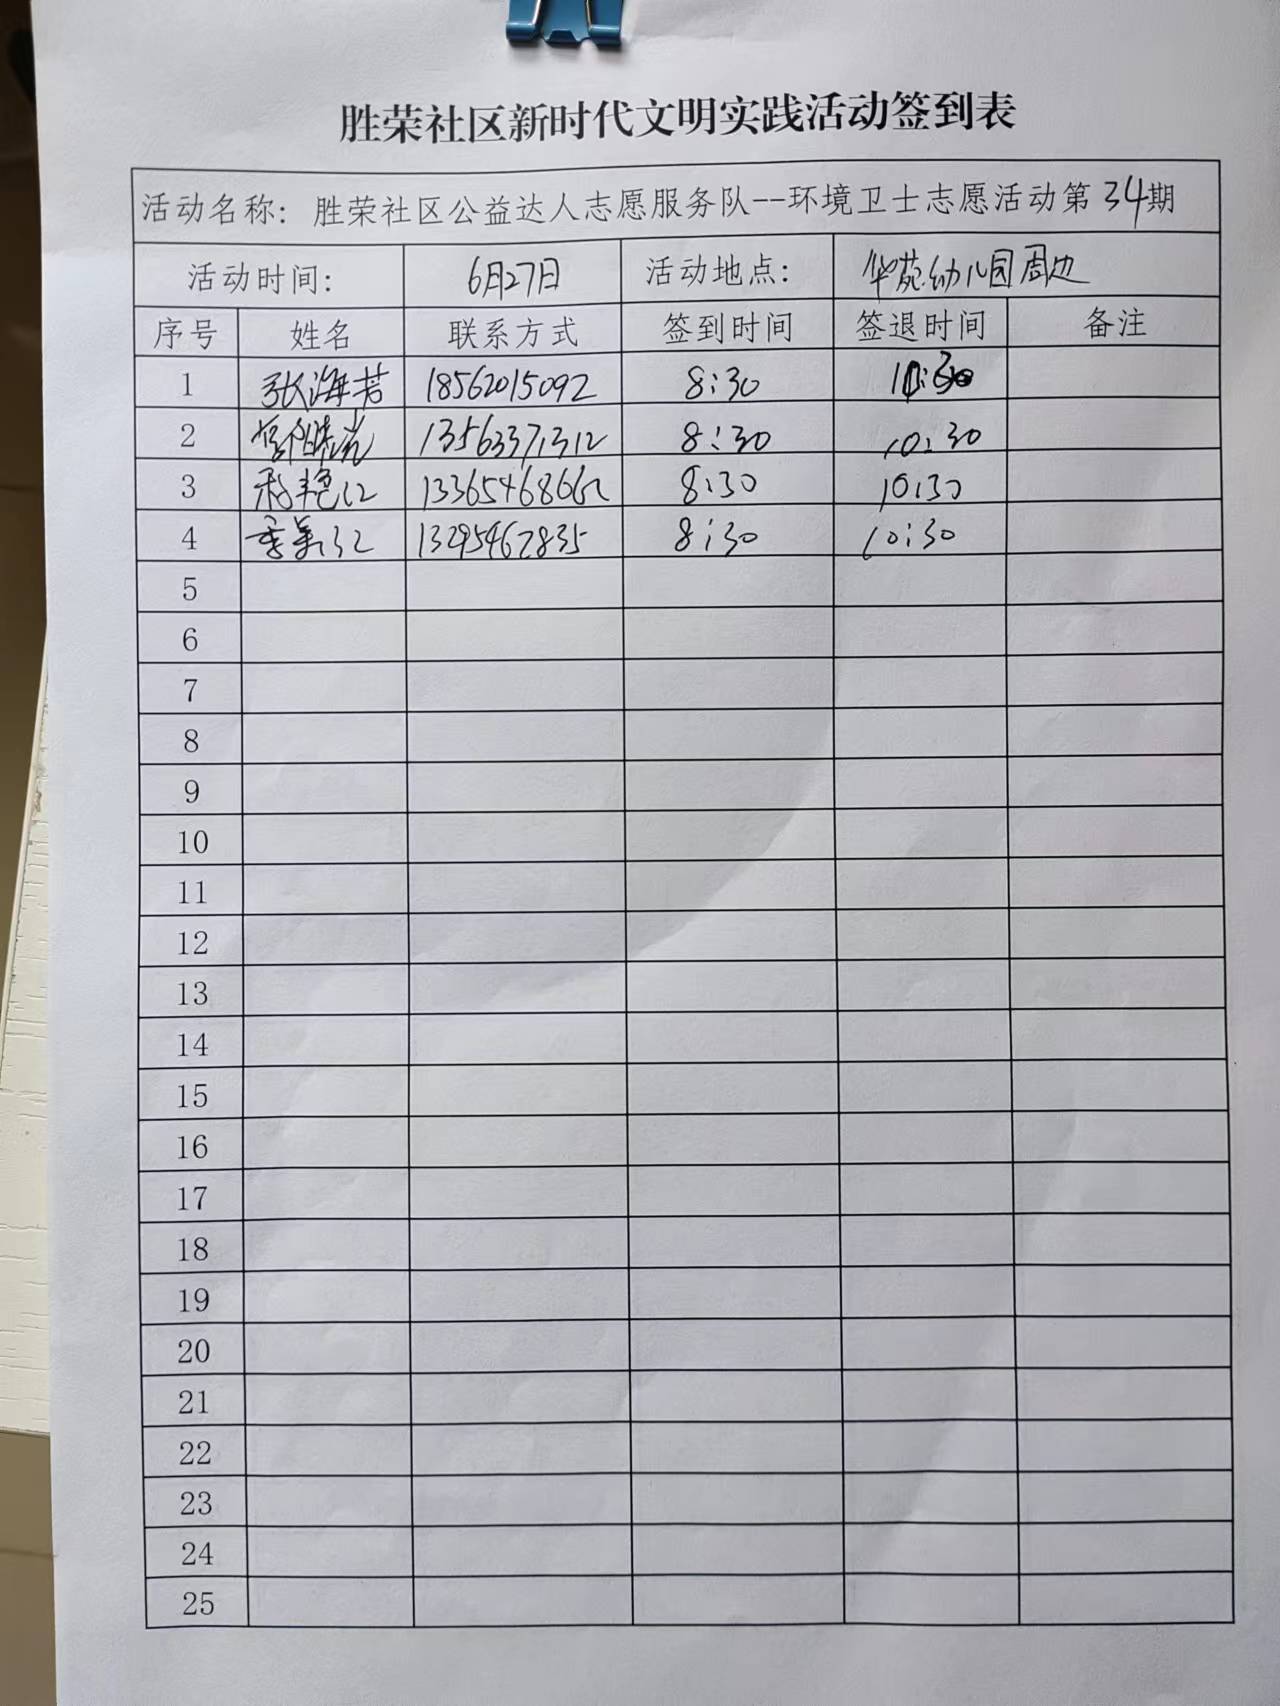 胜荣社区新时代文明实践活动签到表
活动名称：胜荣社区公益达人志愿服务队--环境卫士志愿活动第34期
活动时间： 6月27日 活动地点： 华苑幼儿园周边
序号 姓名 联系方式 签到时间 签退时间 备注
1 张海芳 18562015092 8:30 10:30
2 13563371312 8:30 10:30
3 8:30 10:30
4 13295462835 8:30 10:30
5
6
7
8
9
10
11
12
13
14
15
16
17
18
19
20
21
22
23
24
25